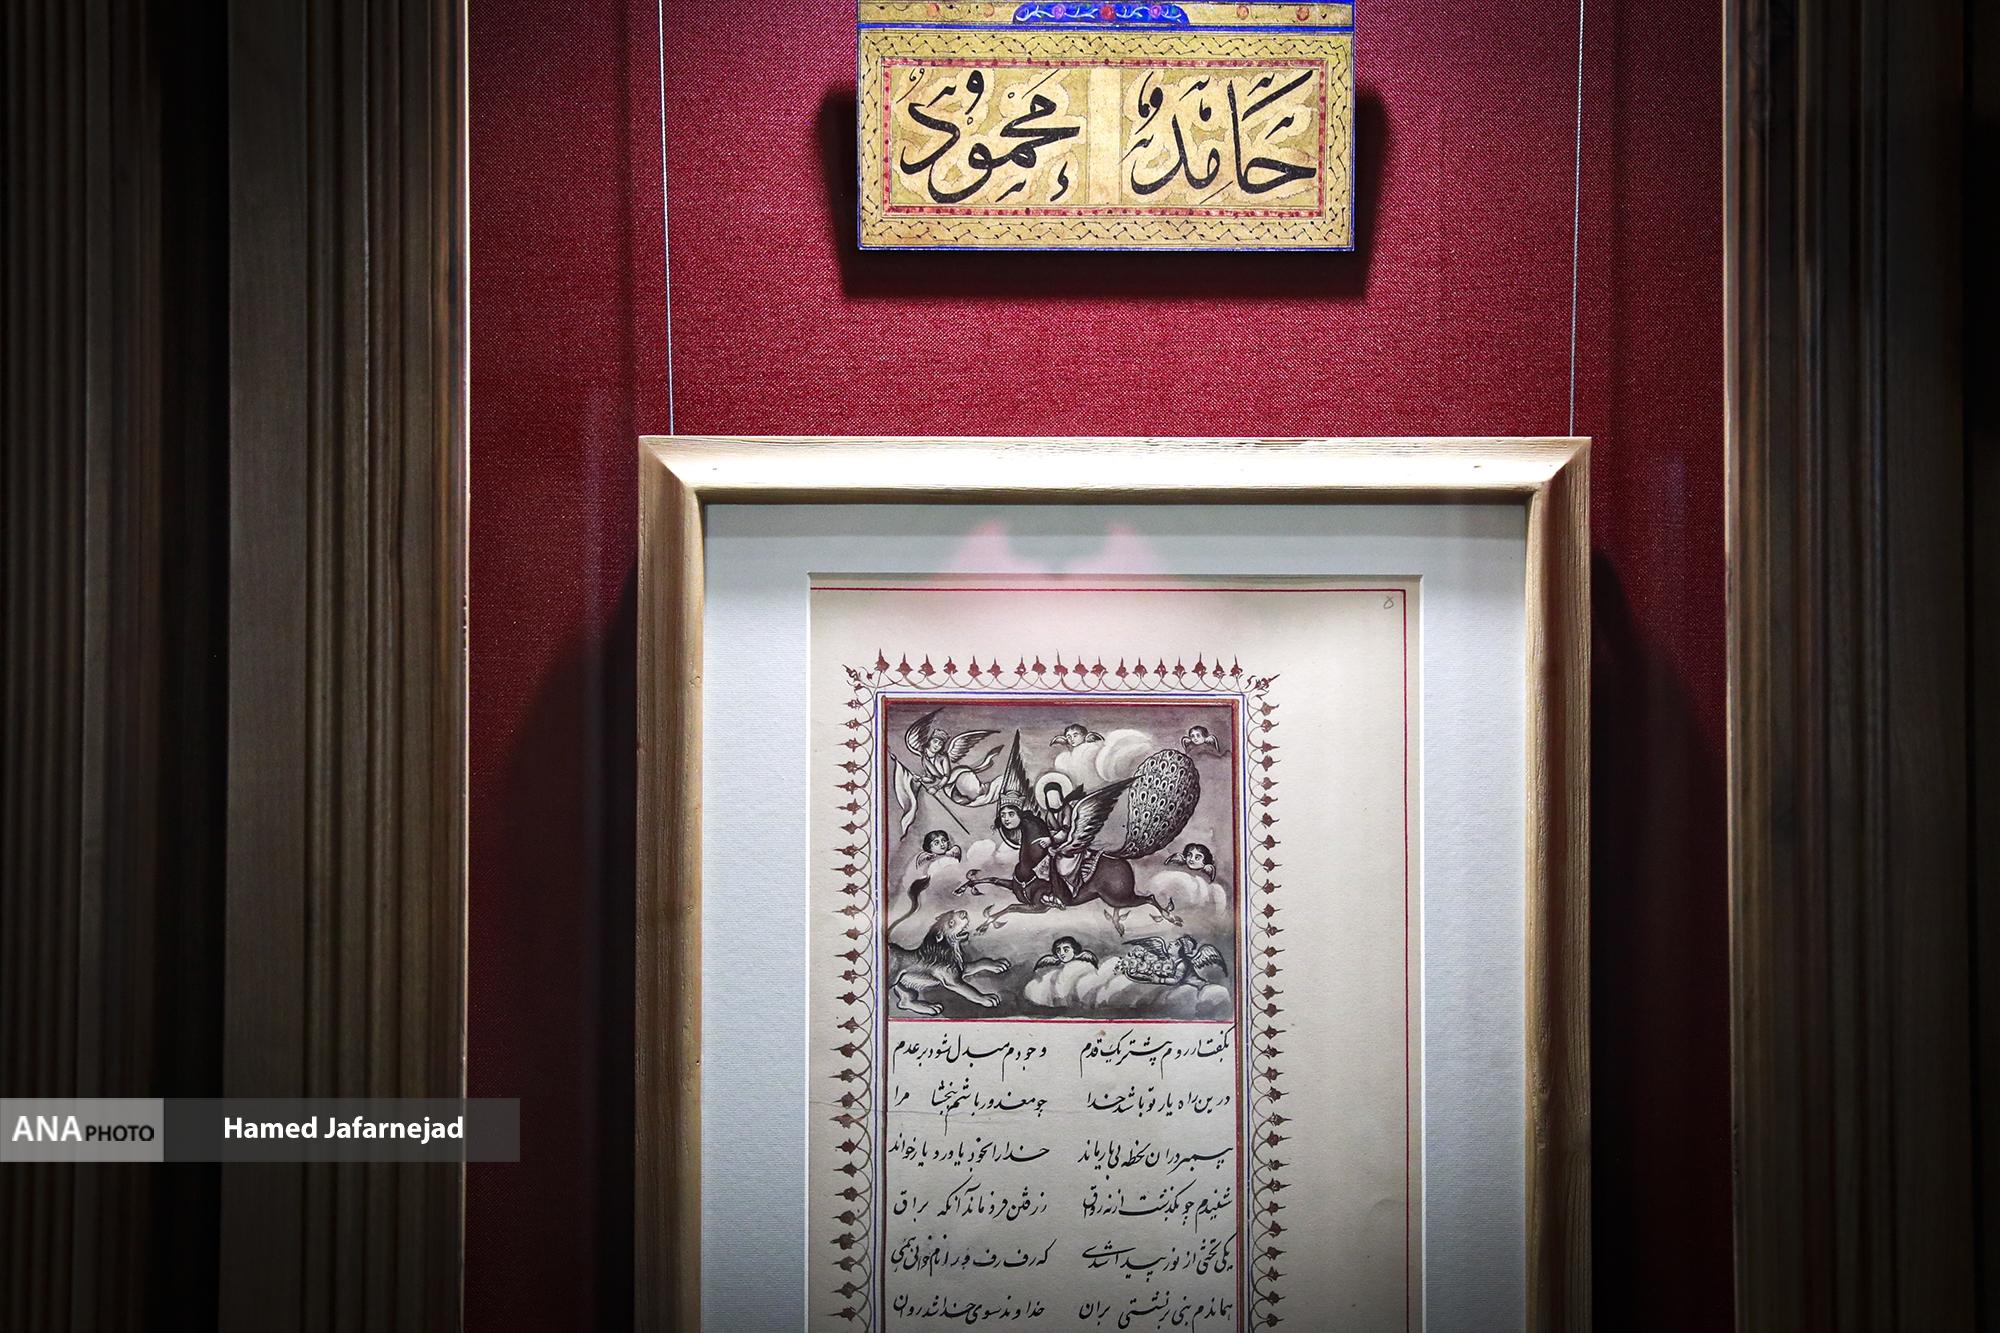 حَامِدٌ مَحْمُودٌ
۵
بگفت ار روم پیشتر یک قدم وجودم مبدل شود بر عدم
درین راه یار تو باشد خدا چو معذور باشم ببخشا مرا
پیمبر در آن لحظه بی یار ماند خدا را بخود یاور و یار خواند
شنیدم چو بگذشت از نه رواق ز رفتن فرو ماند آنکه براق
یکی تختی از نور پیدا شدی که رف رف ورا نام خوانی همی
هماندم نبی بر نشستی بر آن خداوند سوی خدا شد روان
ANA PHOTO Hamed Jafarnejad